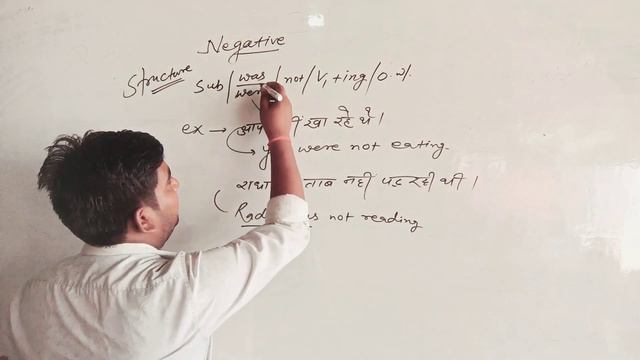 Negative
Structure Sub / was / were / not / V1 + ing / O.W.
ex → नहीं खा रहे थे।
were not eating.
राधा नहीं पढ़ रही थी।
not reading